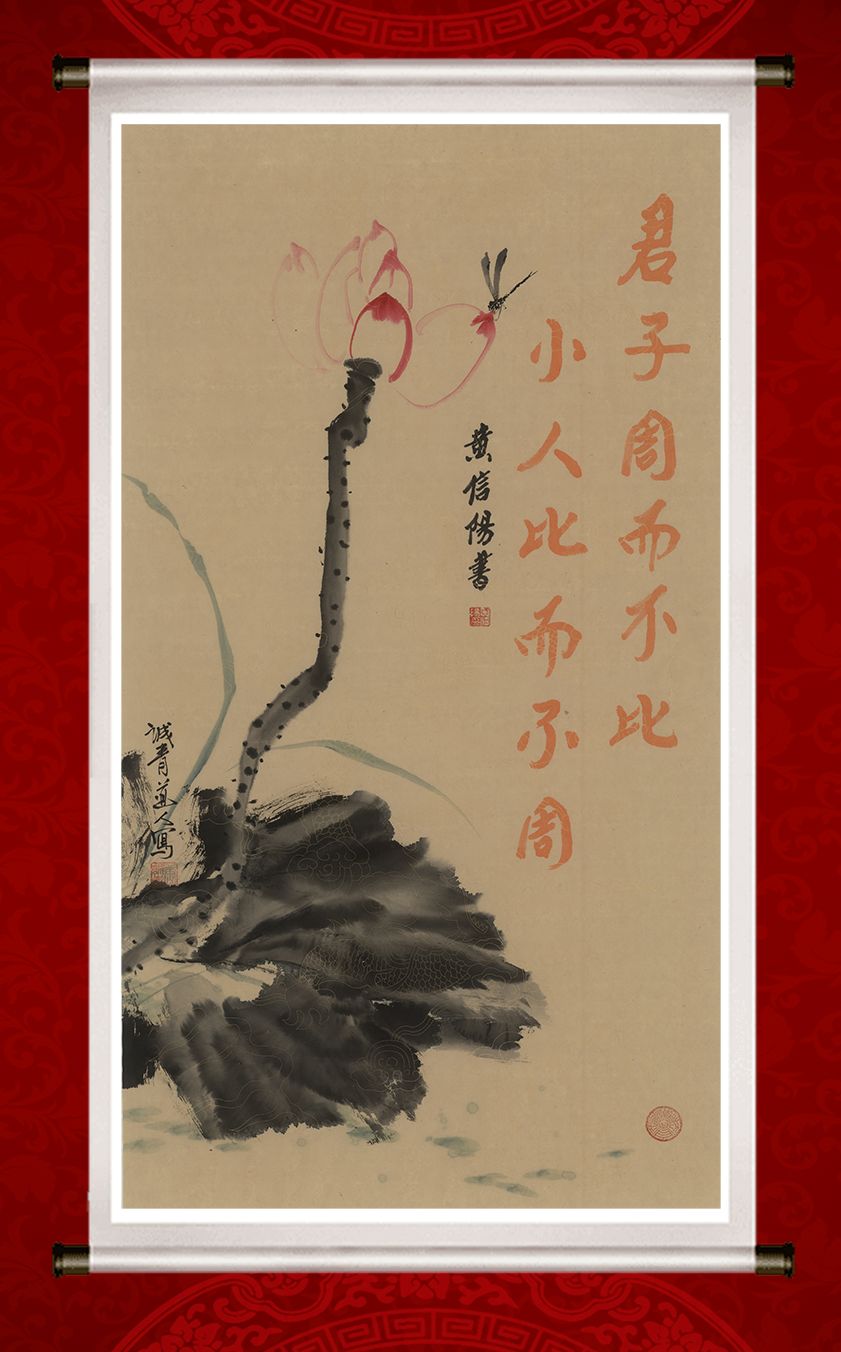 君子周而不比
小人比而不周
黄信陽書
誠青道人寫